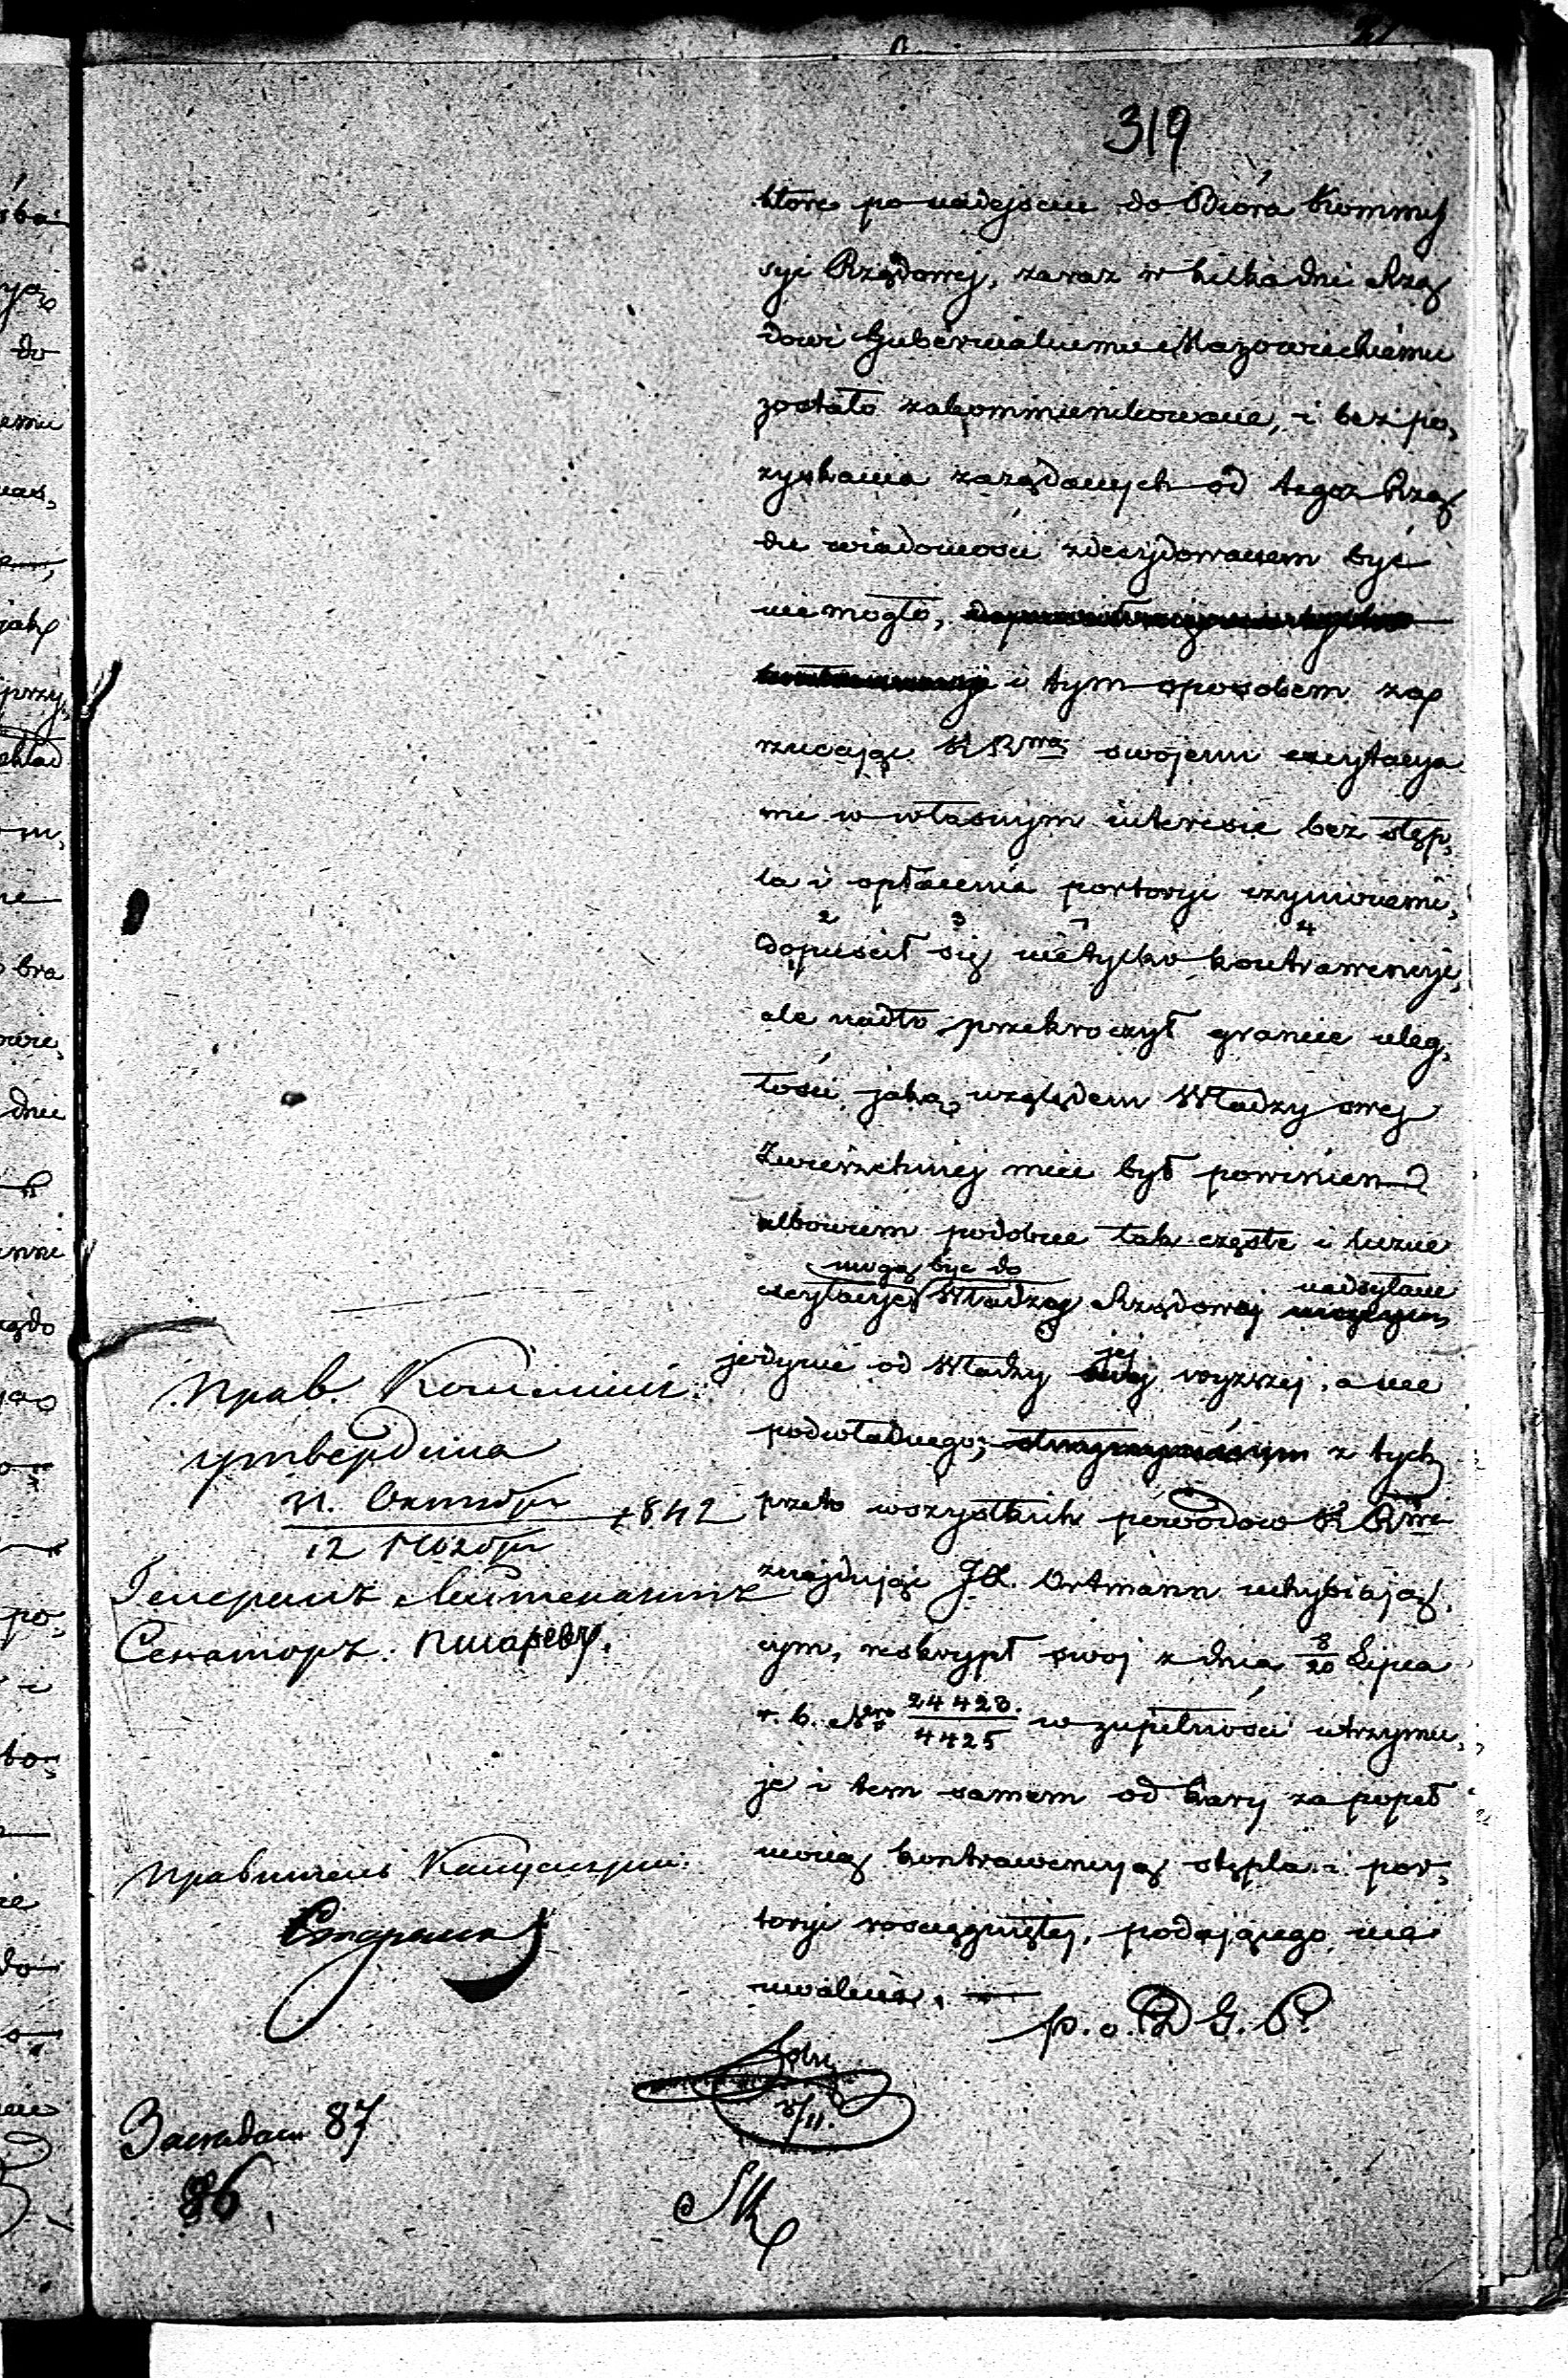 319
które po nadejściu do Bióra Kommis
syi Rządowej, zaraz w kilka dni Rzą
dowi Gubernialnemu Mazowieckiemu
zostało zakommunikowane, i bez po,
zyskania zarządanych od tegoz Rzą
du wiadomości zdecydowanem być
nie mogło,
i tym sposobem za
rzucając K R swojemi excytacya
mi w własnym interesie bez stęp,
la i opłacenia portoryi czynionemi,
2 3 1 4
dopuścił się nietylko kontrawencyi,
ale nadto przekroczył granice uleg,
łości, jaką względem Władzy swej
Zwierzchniej mieć był powinien
albowiem podobne tak częste i liczne
mogą być do nadsyłane
excytacye Władzy Rządowej
jej
jedynie od Władzy swej wyzszej, a nie
podwładnego; z tych
przeto wszystkich powodów K R
znajdując JP. Ortmann uchybiają,
cym, reskrypt swój z dnia 8/20 Lipca
r. b. Nro 24423/4425 w zupełności utrzymu,
je i tem samem od kary za popeł
nioną kontrawencyą stępla i por,
toryi rosciągniętej, podającego nie
uwalnia. —
p. o. D G. P.
Прав. Коммисс.
утвердила
31. Октября / 12 Ноября 1842
Генералъ Лейтенантъ
Сенаторъ. Писаревъ.
Правитель Канцеляріи
Заседан 87
86